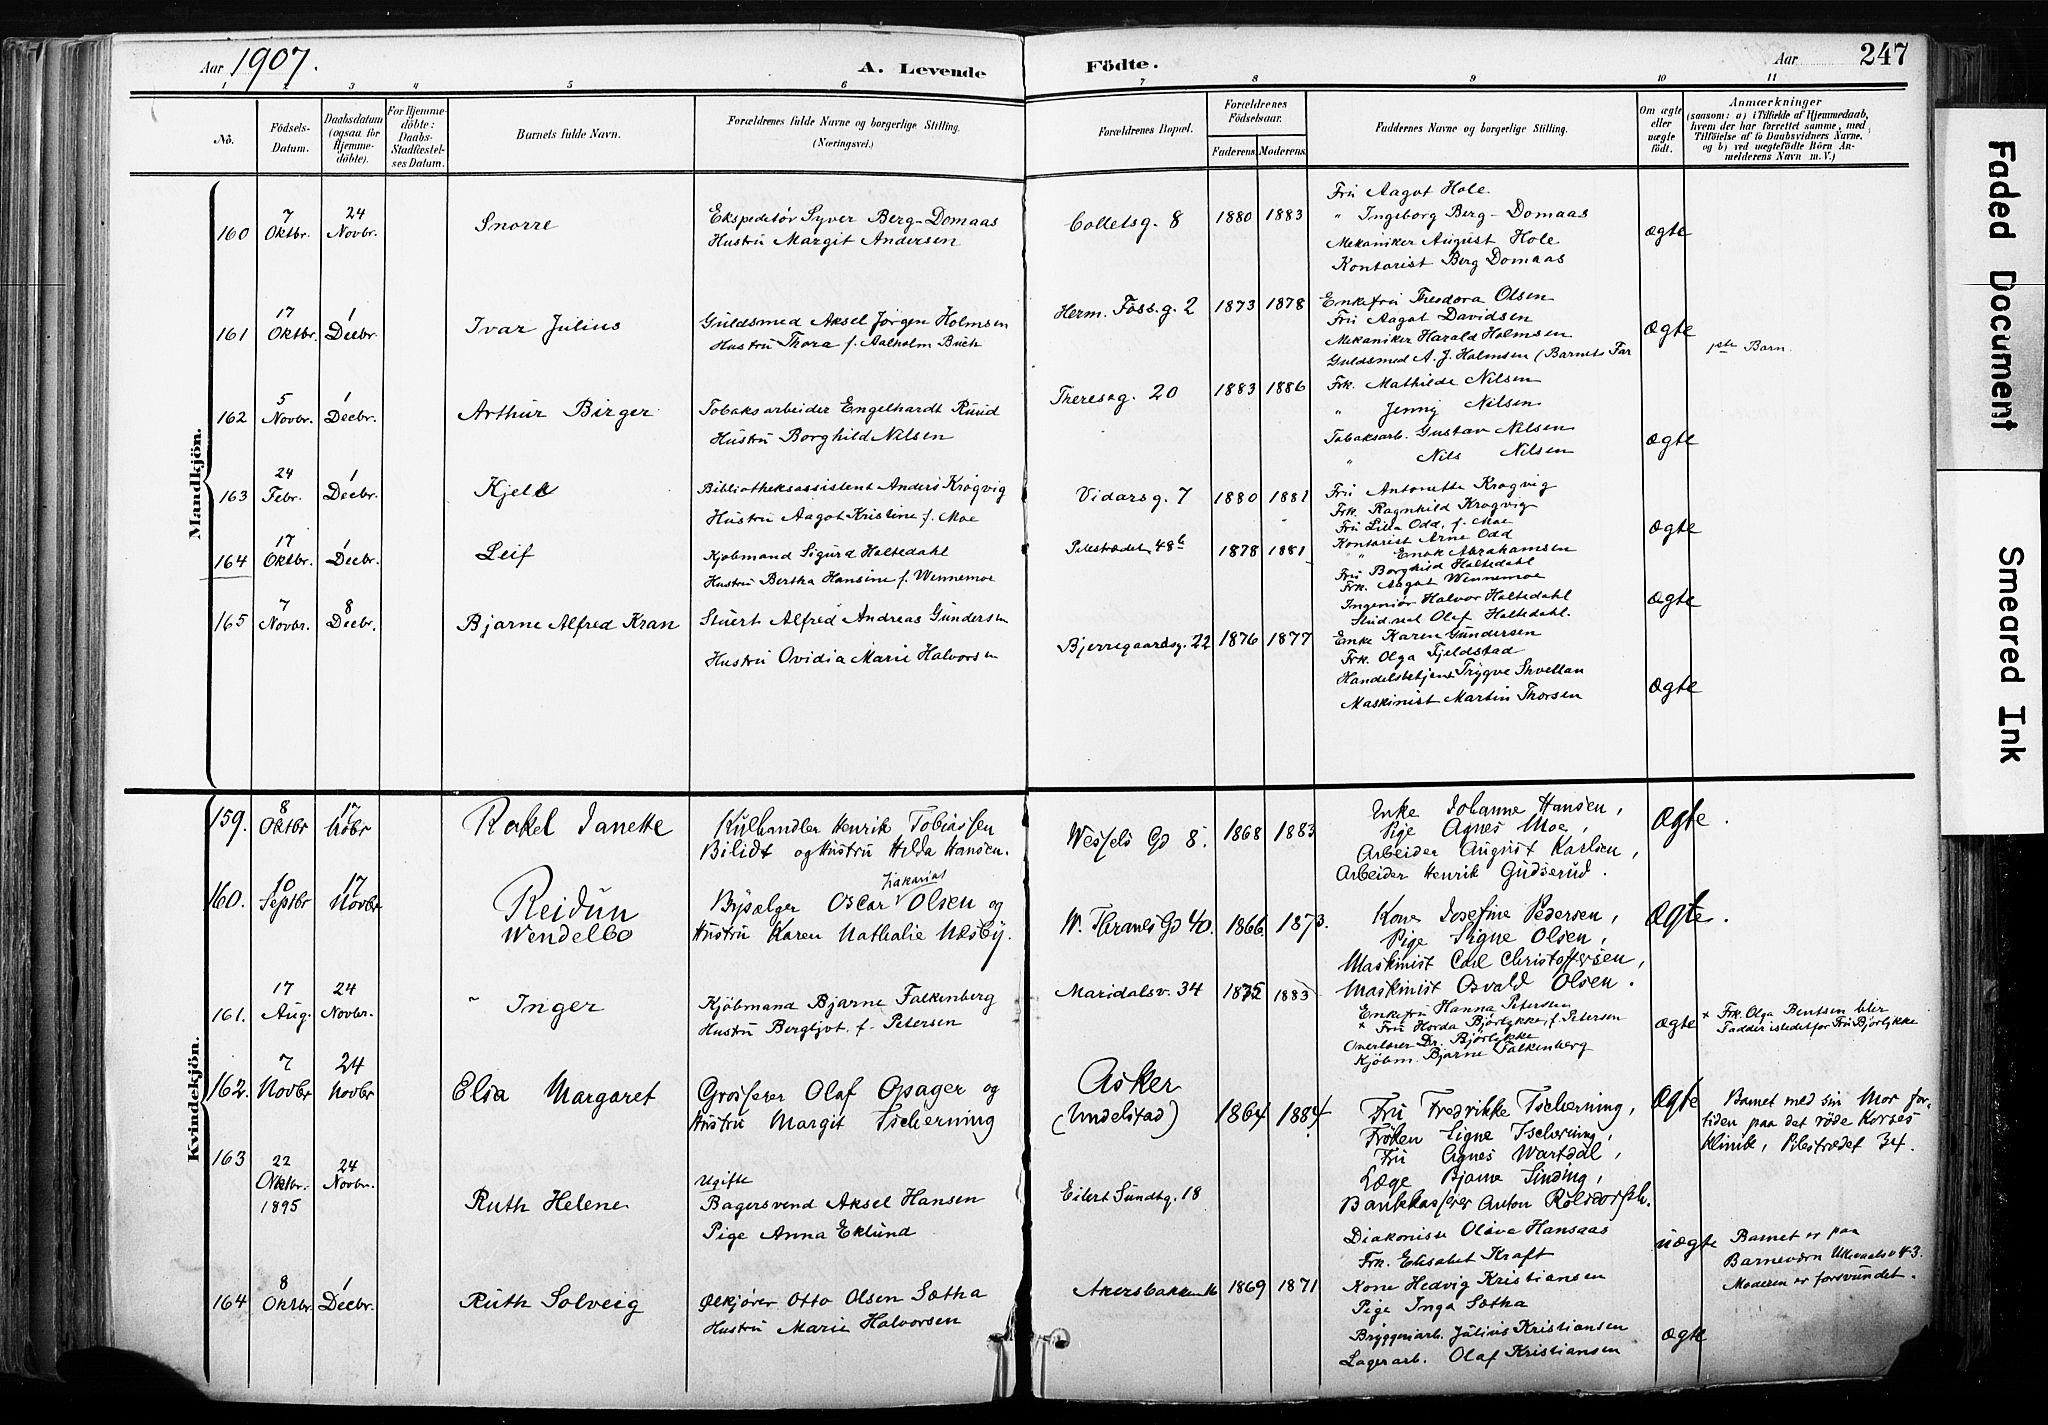 Aar 1907.
A. Levende Födte.
Aar
247
1 2 3 4 5 6 7 8 9 10 11
No.
Födsels-Datum.
Daabsdatum (ogsaa for Hjemme-döbte).
For Hjemme-döbte: Daabs-Stadfæstel-ses Datum.
Barnets fulde Navn.
Forældrenes fulde Navne og borgerlige Stilling.
(Næringsvei.)
Forældrenes Bopæl.
Forældrenes Födselsaar.
Faderens. Moderens.
Faddernes Navne og borgerlige Stilling.
Om ægte eller uægte födt.
Anmærkninger
(saasom: a) i Tilfælde af Hjemmedaab, hvem der har forrettet samme, med Tilföielse af to Daabsvidners Navne, og b) ved uægtefödte Börn An-melderens Navn m. V.)
Mandkjön.
160 7 Oktbr. 24 Novbr. Snorre
Ekspeditör Syver Berg-Domaas
Hustru Margit Andersen
Colletsg. 8 1880 1883
Fru Aagot Hole
" Ingeborg Berg-Domaas
Mekaniker August Hole
Kontorist Berg Domaas
ægte
161 17 Oktbr. 1 Decbr. Ivar Julius
Guldsmed Aksel Jörgen Holmsen
Hustru Thora f. Aalholm Buch
Herm. Fossg. 2 1873 1878
Enkefru Theodora Olsen
Fru Aagot Davidsen
Mekaniker Harald Holmsen
Guldsmed A. J. Holmsen (Barnets Far
ægte
1ste Barn.
162 5 Novbr. 1 Decbr. Arthur Birger
Tobaksarbeider Engelhardt Ruud
Hustru Borghild Nilsen
Theresesg. 20 1883 1886
Frk. Mathilde Nilsen
" Jenny Nilsen
Tobaksarb. Gustav Nilsen
" Nils Nilsen
ægte
163 24 Febr. 1 Decbr. Kjell
Bibliotheksassistent Anders Krogvig
Hustru Aagot Kristine f. Moe
Vidarsg. 7 1880 1881
Fru Antonette Krogvig
Frk. Ragnhild Krogvig
Fru Lilla Odd, f. Moe
Kontorist Arne Odd
" Enok Abrahamsen
ægte
164 17 Oktbr. 1 Decbr. Leif
Kjöbmand Sigurd Holtedahl
Hustru Bertha Hansine f. Wennemoe
Pilestrædet 48b 1878 1881
Fru Borghild Holtedahl
Frk. Aagot Wennemoe
Ingeniör Halvor Holtedahl
Stud. real Olaf Holtedahl.
ægte
165 7 Novbr. 8 Decbr. Bjarne Alfred Kran
Stuert Alfred Andreas Gundersen
Hustru Ovidia Marie Halvorsen
Bjerregaardsg. 22 1876 1877
Enke Karen Gundersen
Frk. Olga Fjeldstad
Handelsbetjent Trygve
Maskinist Martin Thorsen
ægte
Kvindekjön.
159. 8 Oktbr 17 Nobr Rakel Janette
Kulhandler Henrik Tobiassen
Bilidt og Hustru Hilda Hansen.
Wessels Gd 8. 1868 1883
Enke Johanne Hansen,
Pige Agnes Moe,
Arbeider August Karlsen,
Arbeider Henrik Gudserud.
ægte.
160. 10 Septbr 17 Novbr Reidun Wendelbo
Bysælger Oscar Zakarias Olsen og
Hustru Karen Nathalie Næsby.
W. Thranes Gd 40. 1866. 1873.
Kone Josefine Pedersen,
Pige Signe Olsen,
Maskinist Carl Christoffersen,
Maskinist Osvald Olsen.
ægte.
161. 17 Aug. 24 Novbr. Inger
Kjöbmand Bjarne Falkenberg
Hustru Bergljot. f. Petersen
Maridalsv. 34 1875 1883
Enkefru Hanna Petersen
+ Fru Horda Björlykke, f. Petersen
Overlærer Dr. Björlykke
Kjöbm. Bjarne Falkenberg
ægte
+ Frk. Olga Bentsen blir
Fadder istedetfor Fru Björlykke
162. 7 Novbr 24 Novbr Elsa Margaret
Grosserer Olaf Opsager og
Hustru Margit Tscherning
Asker
(Undelstad) 1864 1884
Fru Fredrikke Tscherning,
Fröken Signe Tscherning,
Fru Agnes Wartdal,
Læge Bjarne Sinding,
Bankkasserer Anton Rolsdorph.
ægte
Barnet med sin Mor for-
tiden paa det röde Korses
Klinik, Pilestrædet 34.
163 22 Oktbr. 1895 24 Novbr. Ruth Helene
Ugifte
Bagersvend Aksel Hansen
Pige Anna Eklund
Eilert Sundtsg. 18
Diakonisse Olave Hansaas
Frk. Elisabet Kraft
uægte
Barnet er paa
Barneværn Ullevaalsv 43.
Moderen er forsvundet.
164 8 Oktbr. 1 Decbr. Ruth Solveig
Ölkjörer Otto Olsen Sætha
Hustru Marie Halvorsen
Akersbakken 16 1869 1871
Kone Hedvig Kristiansen
Pige Inga Sætha
Bryggeriarb. Julius Kristiansen
Lagerarb. Olaf Kristiansen
ægte
Faded Document
Smeared Ink